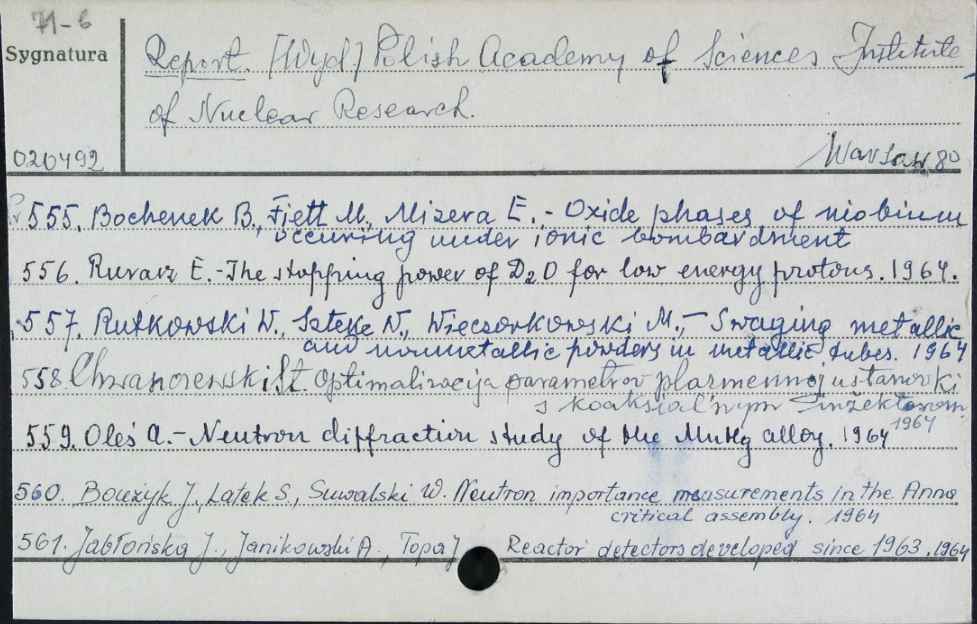 71-6
Sygnatura
Report. [Wyd] Polish Academy of Sciences Institute
of Nuclear Research.
020492
Warsaw 80
555. Bochenek B., Fiett M., Mizera E. - Oxide phases of niobium
occuring under ionic bombardment
556. Ruvarz E. - The stopping power of D2O for low energy protons. 1964.
557. Rutkowski W., Szteke W., Więcsorkowski M., - Swaging metallic
and nonmetallic powders in metallic tubes. 1964
558. St. Optimalizacija parametrov plazmennoj ustanovki
s koaksial'nym inžektorom
1964
559. Oleś A. - Neutron diffraction study of the alloy. 1964
560. J., Latek S., Suwalski W. Neutron importance measurements in the Anna
critical assembly. 1964
561. Jabłońska J., Janikowski A., Topa J Reactor detectors developed since 1963. 1964